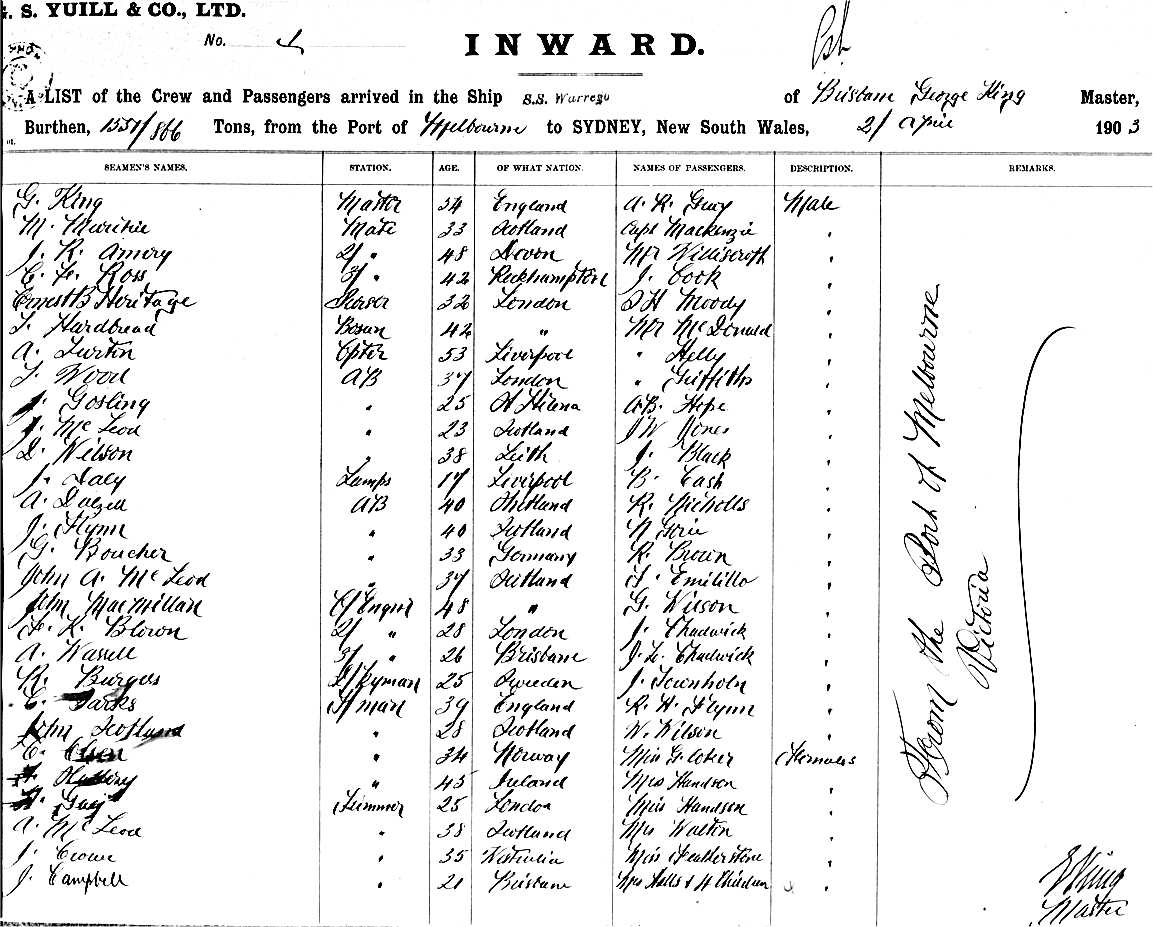 G. S. YUILL & CO., LTD.
No. 1
INWARD.
A LIST of the Crew and Passengers arrived in the Ship S.S. Warrego of Brisbane George King Master,
Burthen, 1551/866 Tons, from the Port of Melbourne to SYDNEY, New South Wales, 2/ April 1903
SEAMEN'S NAMES. STATION. AGE. OF WHAT NATION. NAMES OF PASSENGERS. DESCRIPTION. REMARKS.
G. King Master 54 England A. R. Gray Male
M. Murihie Mate 33 Scotland Capt Mackenzie "
J. R. Amery 2/ " 48 Devon Mr Williscroft "
C. F. Ross 3/ " 42 Rockhampton J. Cook "
Ernest B Heritage Purser 32 London T H Moody "
T. Hardbread Bosun 42 " Mr McDonald "
A. Turtin Cpter 53 Liverpool " Helly "
T. Wood AB 37 London " Griffiths "
J. Gosling " 25 St Helena A.B. Hope "
J. McLeod " 23 Scotland J W Jones "
D. Wilson " 38 Leith J. Black "
J. Daly Lamps 17 Liverpool B. Cash "
A. Dalzell AB 40 Shetland R. Nicholls "
J. Flynn " 40 Scotland N Gorie "
G. Boucher " 33 Germany R. Brown "
John A. McLeod " 37 Scotland F. Emilillo "
John MacMillan C/Engnr 48 " G. Wilson "
F. R. Blown 2/ " 28 London J. Chadwick "
A. Wassell 3/ " 26 Brisbane J. L. Chadwick "
R. Burgess D/kyman 25 Sweden J. Teunholn "
C. Parks F/man 39 England R. H. Flynn "
John Scotland " 28 Scotland W. Wilson "
C. Essen " 34 Norway Miss Glober Females
" 45 Ireland Mrs Handson "
Guy Trimmer 25 London Miss Handson "
A. McLeod " 38 Scotland Mrs Walton "
J. Crowe " 35 Miss Featherstone "
J. Campbell " 21 Brisbane Mrs Halls & 4 Children "
From the Port of Melbourne
Victoria
G King
Master